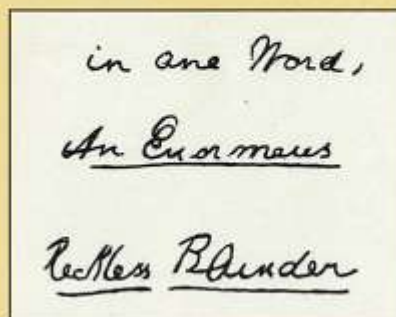 in one Word,
An Enormous
Reckless Blunder